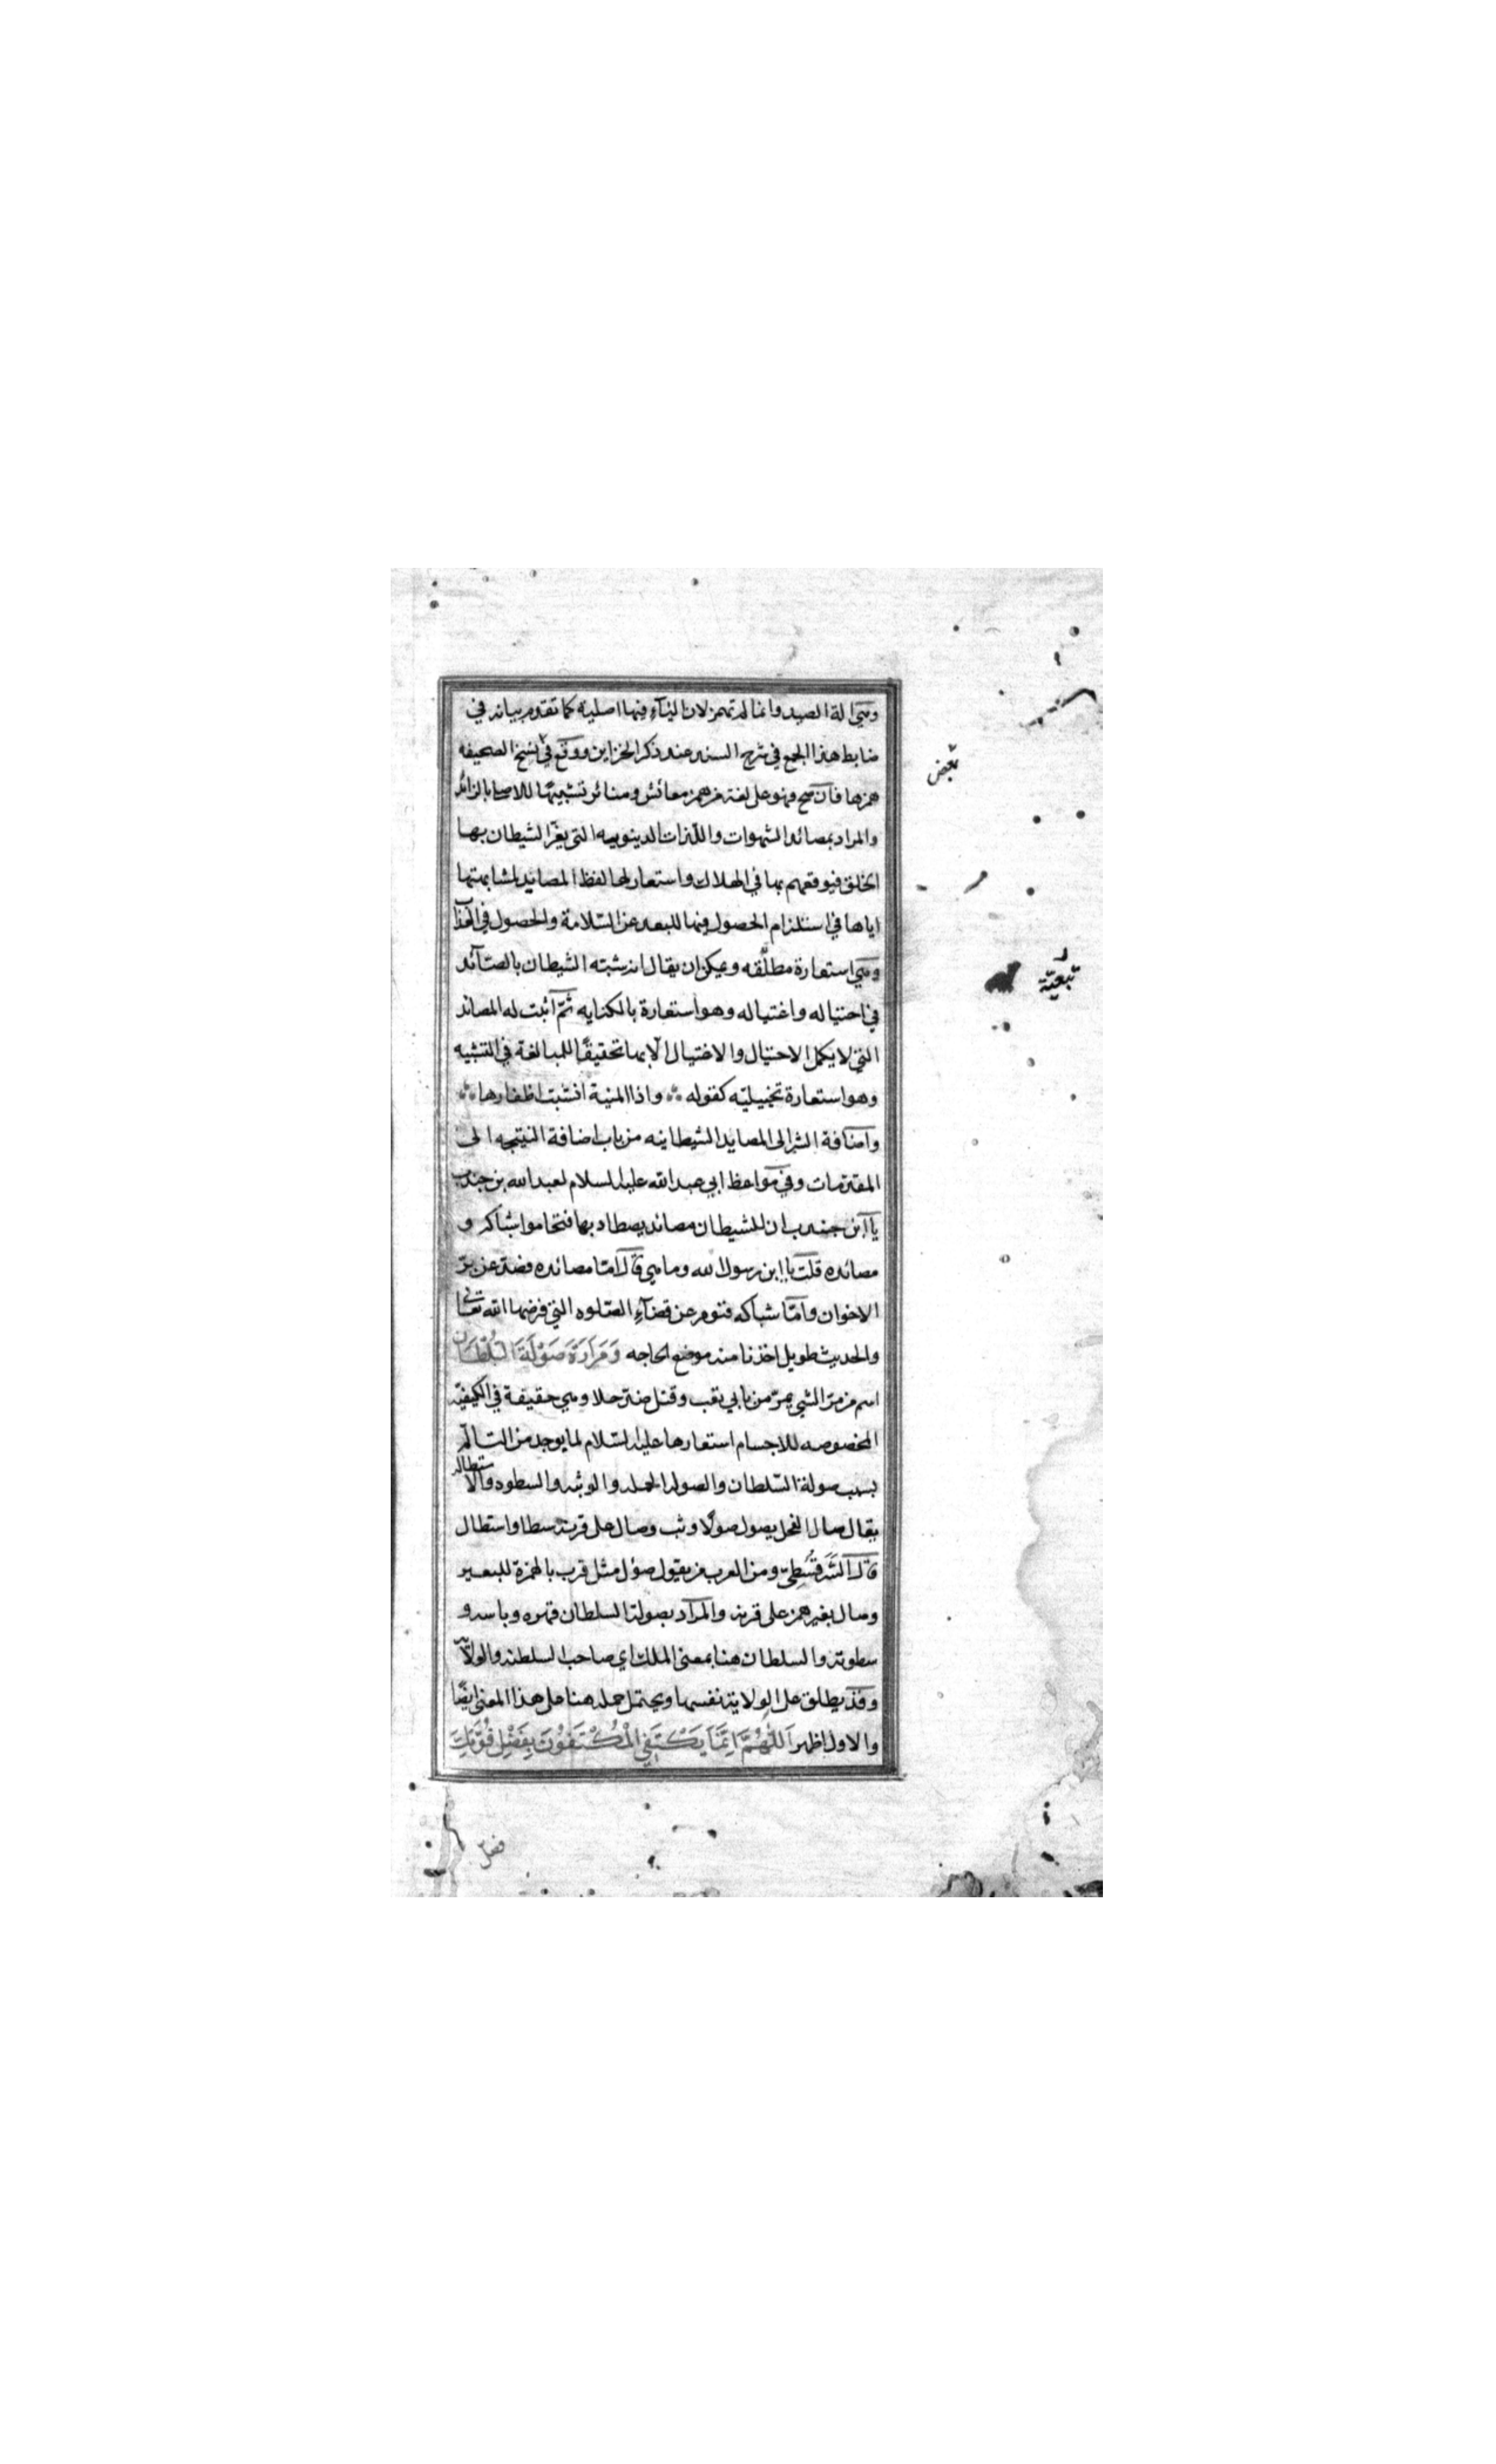 وهي الة الصيد وانما لم تهمز لان الياء فيها اصلية كما تقدم بيانه في
ضابط هذا الجمع في شرح السند عند ذكر الخزاين ووقع في نسخ الصحيفه
بعض
همزها فان صح فهو على لغة من همز معائش ومنائر تشبيهًا للاصلي بالزائد
والمراد بمصائد الشهوات واللذات الدينويه التي يغر الشيطان بها
الخلق فيوقعهم بها في الهلاك واستعار لها لفظ المصايد لمشابهتها
اياها في استلزام الحصول فيها للبعد عن السلامة والحصول في العذاب
وهي استعارة مطلقه ويمكن ان يقال انه شبه الشيطان بالصائد
تبعيّة
في احتياله واغتياله وهو استعارة بالكنايه ثم اثبت له المصائد
التي لا يكمل الاحتيال والاغتيال الا بها تحقيقًا للمبالغة في التشبيه
وهو استعارة تخييليه كقوله ∴ واذا المنية انشبت اظفارها ∴
واضافة الشر الى المصايد الشيطانيه من باب اضافة النتيجه الى
المقدمات وفي مواعظ ابي عبد الله عليه السلام لعبد الله بن جندب
يا ابن جندب ان للشيطان مصائد يصطاد بها فتحاموا شباكه و
مصائده قلت يا ابن رسول الله وما هي قال اما مصائده فصد عن بر
الاخوان واما شباكه فنوم عن قضاء الصلوه التي فرضها الله تعالى
والحديث طويل اخذنا منه موضع الحاجه وَمَرَارَةَ صَوْلَةِ السُّلْطَانِ
اسم من مر الشي يمر من بابي تعب وقتل ضد حلا وهي حقيقة في الكيفيّة
المخصوصه للاجسام استعارها عليه السلام لما يوجد من التالّم
بسبب صولة السلطان والصولة الحملة والوثبه والسطوه والاستطاله
يقال صال الفحل يصول صولًا وثب وصال على قرنه سطا واستطال
قال السَّرَقُسْطِيّ ومن العرب من يقول صؤل مثل قرب بالهمزة للبعير
وصال بغير همز على قرنه والمراد بصولة السلطان قهره وباسه و
سطوته والسلطان هنا بمعنى الملك اي صاحب السلطنه والولاية
وقد يطلق على الولاية نفسها ويحتمل حمله هنا على هذا المعنى ايضًا
والاول اظهر اَللّٰهُمَّ اِنَّمَا يَكْتَفِي الْمُكْتَفُوْنَ بِفَضْلِ قُوَّتِكَ
فصل